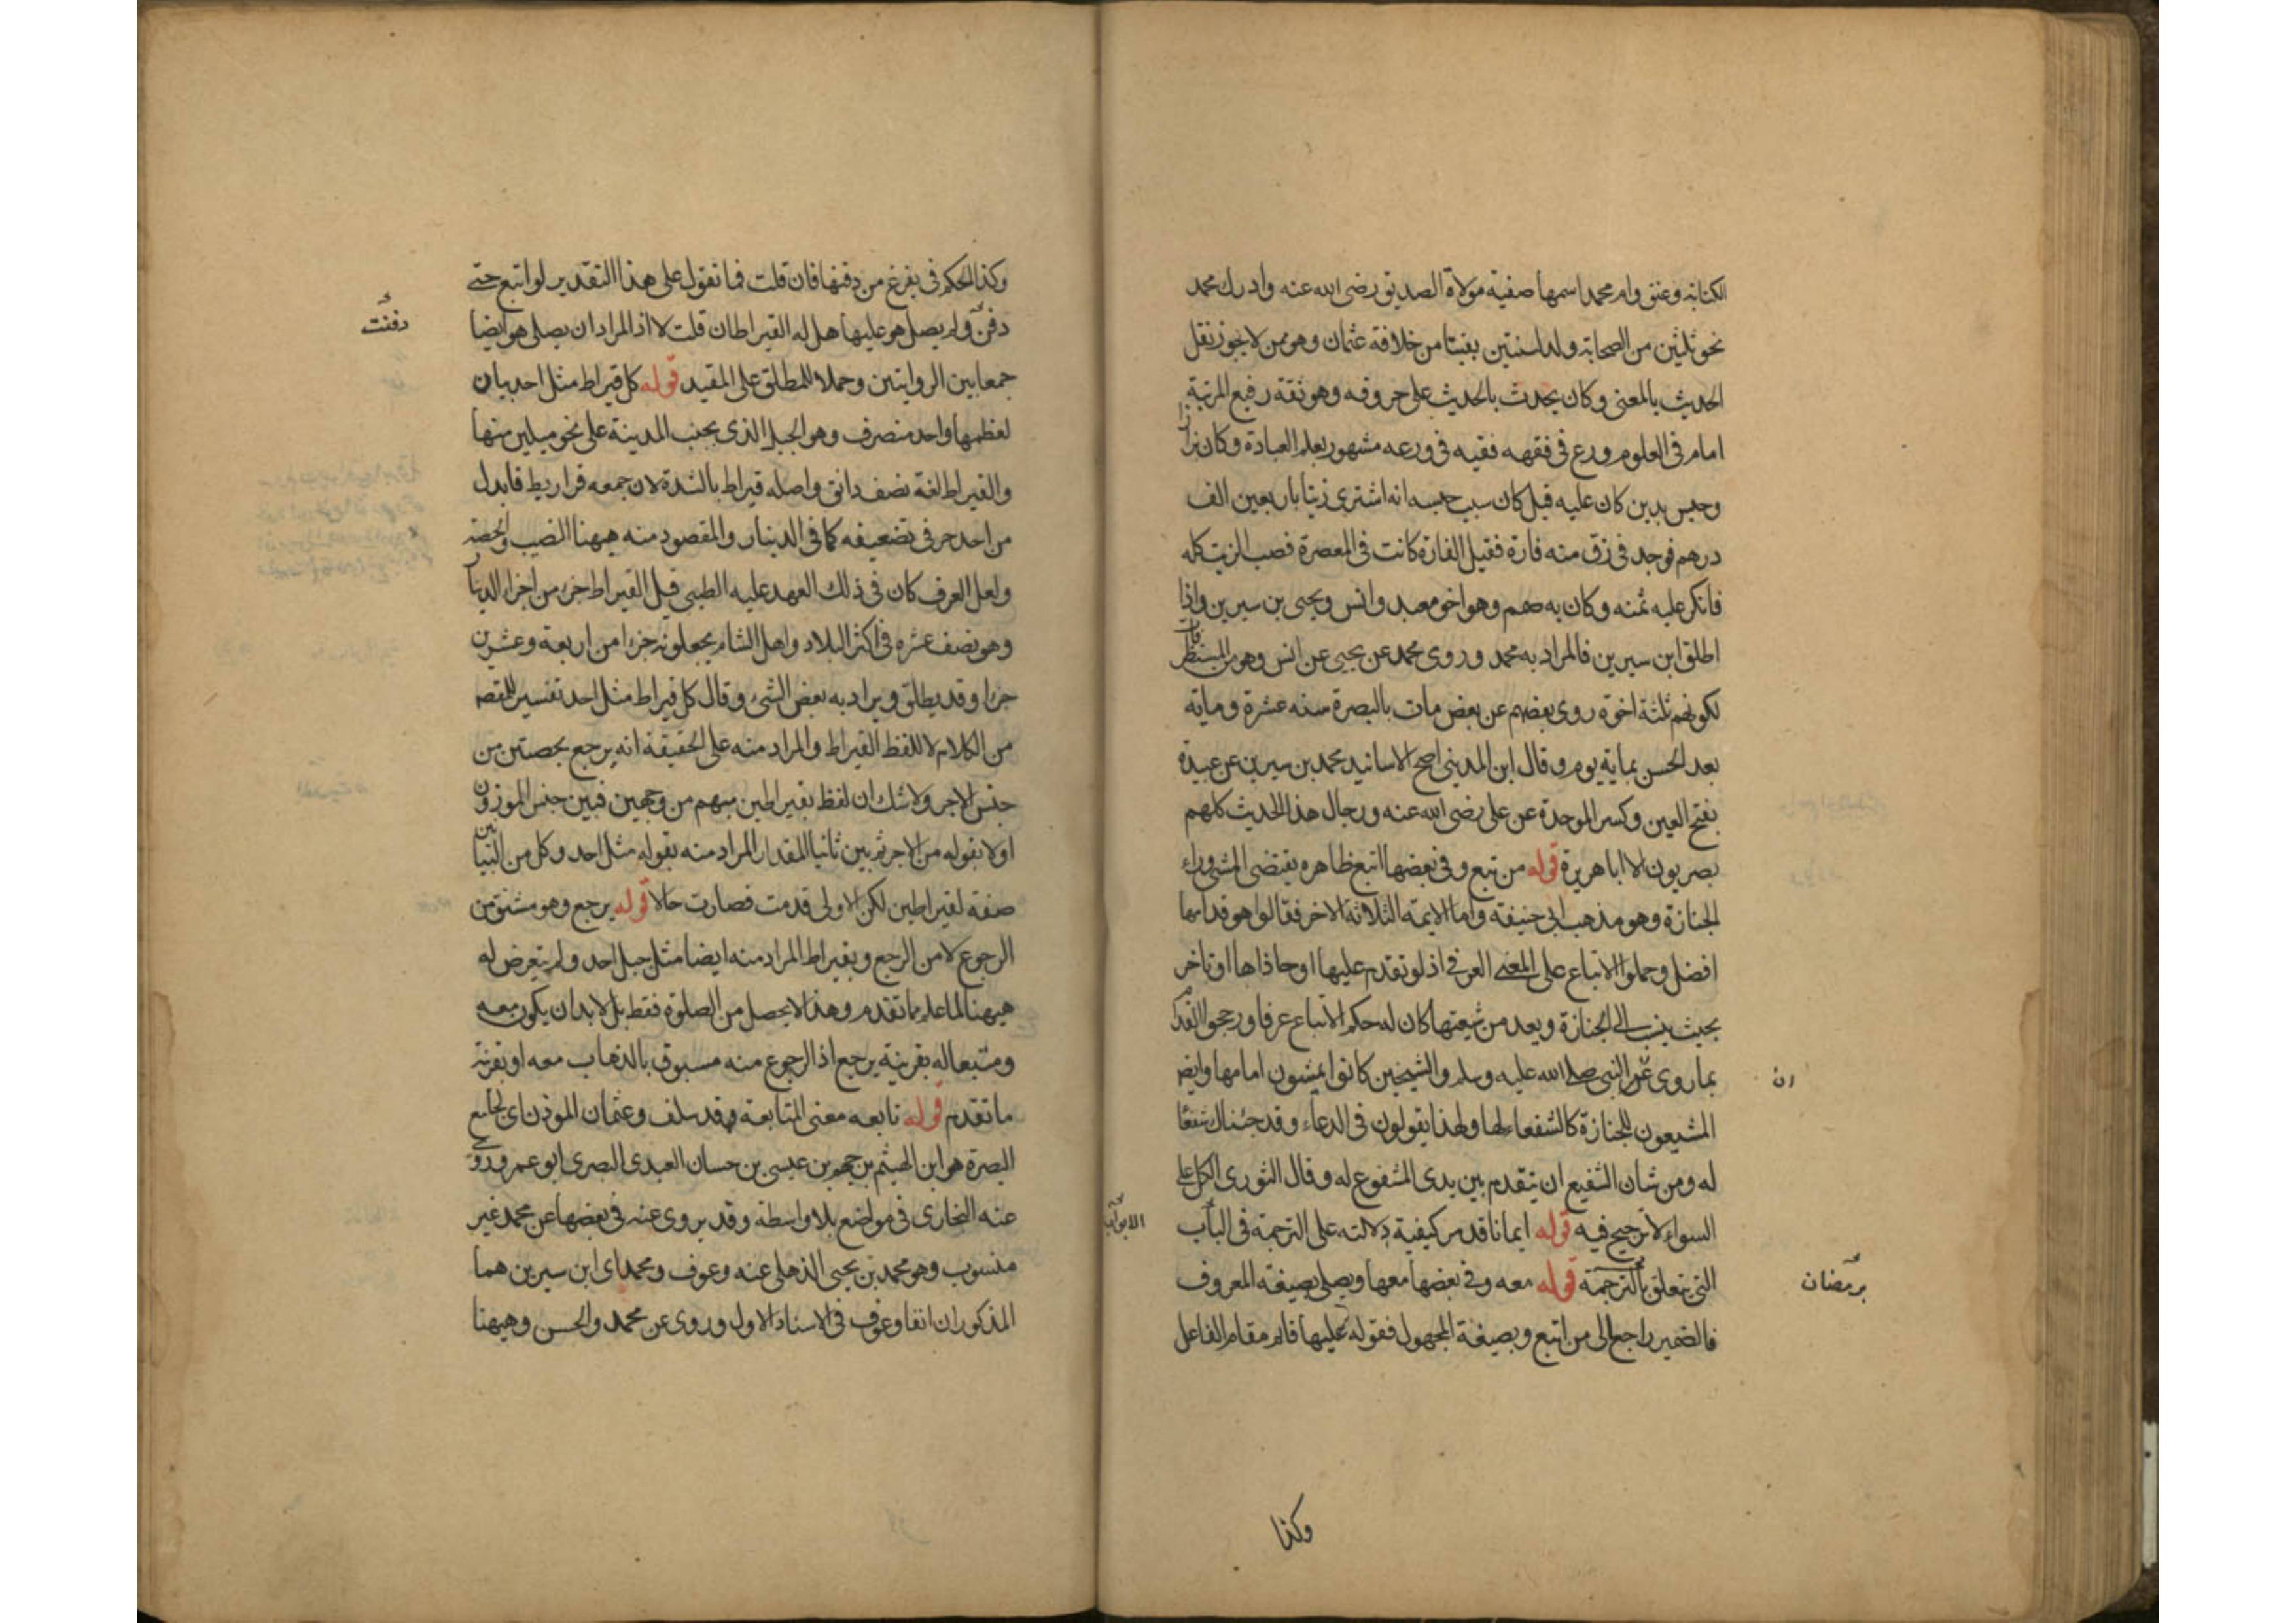 الكتابة وعتق وام محمد اسمها صفية مولاة الصديق رضى الله عنه وادرك محمد
نحو ثلثين من الصحابة ولد لسنتين بقيتا من خلافة عثمان وهو ممن لا يجوز نقل
الحديث بالمعنى وكان يحدث بالحديث على حروفه وهو ثقة رفيع المرتبة
امام فى العلوم ورع فى فقهه فقيه فى ورعه مشهور بعلم العبادة وكان بزازا
وحبس بدين كان عليه قيل كان سبب حبسه انه اشترى زيتا باربعين الف
درهم فوجد فى زق منه فارة فقيل الفارة كانت فى المعصرة فصب الزيت كله
فانكر عليه ثمنه وكان به صمم وهو اخو معبد وانس ويحيى بن سيرين واذا
اطلق ابن سيرين فالمراد به محمد وروى محمد عن يحيى عن انس وهو من المستظرفات
لكونهم ثلثة اخوة روى بعضهم عن بعض مات بالبصرة سنه عشرة ومايه
بعد الحسن بماية يوم وقال ابن المدينى اصح الاسانيد محمد بن سيرين عن عبيدة
بفتح العين وكسر الموحدة عن على رضى الله عنه ورجال هذا الحديث كلهم
بصريون الا ابا هريرة قوله من تبع وفى بعضها اتبع ظاهره يقتضى المشى وراء
الجنازة وهو مذهب ابى حنيفة واما الايمة الثلاثة الاخر فقالوا هو قدامها
افضل وحملوا الاتباع على المعنى العرفى اذ لو تقدم عليها او حاذاها او تاخر
بحيث ينسب الى الجنازة ويعد من شيعتها كان له حكم الاتباع عرفا ورجحوا التقدم
بما روى عن النبى صلى الله عليه وسلم والشيخين كانوا يمشون امامها وايضا
ان
المشيعون للجنازة كالشفعاء لها ولهذا يقولون فى الدعاء وقد جئناك شفعا
له ومن شان الشفيع ان يتقدم بين يدى المشفوع له وقال الثورى الكل على
السواء لا ترجيح فيه قوله ايمانا قد مر كيفية دلالته على الترجمة فى الباب
الابواب
التى يتعلق بالترجمة قوله معه وفى بعضها معها ويصلى بصيغة المعروف
برمضان
فالضمير راجع الى من اتبع وبصيغة المجهول فقوله عليها قائم مقام الفاعل
وكذا
وكذا الحكم فى يفرغ من دفنها فان قلت فما تقول على هذا التقدير لو اتبع حتى
دفن ولم يصل هو عليها هل له القيراطان قلت لا اذ المراد ان يصلى هو ايضا
دفنت
جمعا بين الروايتين وحملا للمطلق على المقيد قوله كل قيراط مثل احد بيان
لعظمها واحد منصرف وهو الجبل الذى بجنب المدينة على نحو ميلين منها
والقيراط لغة نصف دانق واصله قراط بالشدة لان جمعه قراريط فابدل
من احد حرفى تضعيفه كما فى الدينار والمقصود منه هيهنا النصيب والحصة
ولعل العرف كان فى ذلك العهد عليه الطيبى قيل القيراط جزء من اجزاء الدينار
وهو نصف عشره فى اكثر البلاد واهل الشام يجعلونه جزءا من اربعة وعشرين
جزءا وقد يطلق ويراد به بعض الشئ وقال كل قيراط مثل احد تفسير للمقصود
من الكلام لا للفظ القيراط والمراد منه على الحقيقة انه يرجع بحصتين من
جنس الاجر ولا شك ان لفظ بقيراطين مبهم من وجهين فبين جنس الموزون
اولا بقوله من الاجر ثم بين ثانيا المقدار المراد منه بقوله مثل احد وكل من البيانين
صفة لقيراطين لكن الاولى قدمت فصارت حالا قوله يرجع وهو مشتق من
الرجوع لا من الرجع وبقيراط المراد منه ايضا مثل جبل احد ولم يتعرض له
هيهنا لما علم مما تقدم وهذا لا يحصل من الصلوة فقط بل لا بد ان يكون معه
ومتبعا له بقرينة يرجع اذ الرجوع منه مسبوق بالذهاب معه او بقرينة
ما تقدم قوله تابعه معنى المتابعة قد سلف وعثمان الموذن اى لجامع
البصرة هو ابن الهيثم بن جهم بن عيسى بن حسان العبدى البصرى ابو عمرو روى
عنه البخارى فى مواضع بلا واسطة وقد يروى عنه فى بعضها عن محمد غير
منسوب وهو محمد بن يحيى الذهلى عنه وعوف ومحمد اى ابن سيرين هما
المذكوران انفا وعوف فى الاسناد الاول وروى عن محمد والحسن وهيهنا